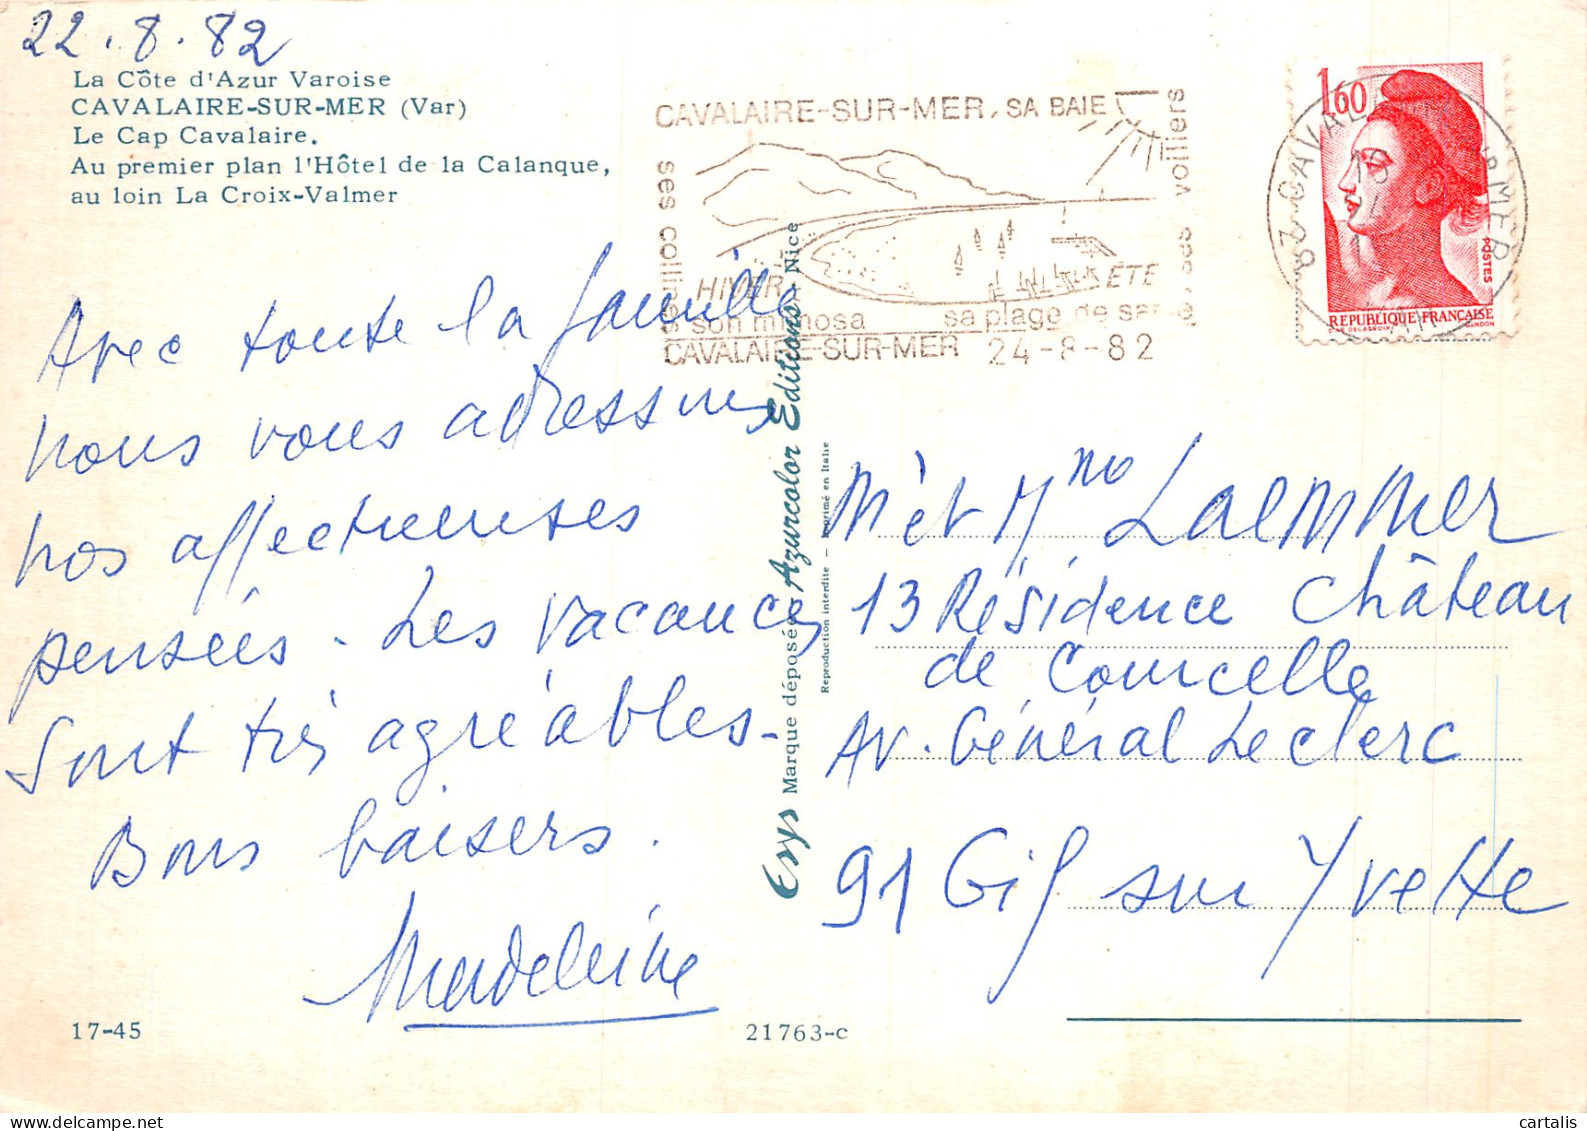 22.8.82
La Côte d'Azur Varoise
CAVALAIRE-SUR-MER (Var)
Le Cap Cavalaire.
Au premier plan l'Hôtel de la Calanque,
au loin La Croix-Valmer
Avec toute la famille
nous vous adressons
nos affectueuses
pensées. Les vacances
sont très agréables.
Bons baisers.
Madeleine
17-45
21763-c
Erys Marque déposée Azurcolor Editions - Nice
Reproduction interdite — Imprimé en Italie
CAVALAIRE-SUR-MER, SA BAIE
ses collines
ses voiliers
HIVER
son mimosa
ÉTÉ
sa plage de sable
CAVALAIRE-SUR-MER 24-8-82
1,60
POSTES
REPUBLIQUE FRANÇAISE
D'AP. DELACROIX GANDON
83 CAVALAIRE S MER
M et Mme Laemmer
13 Résidence Château
de Courcelle
Av. Général Leclerc
91 Gif sur Yvette
cartalis